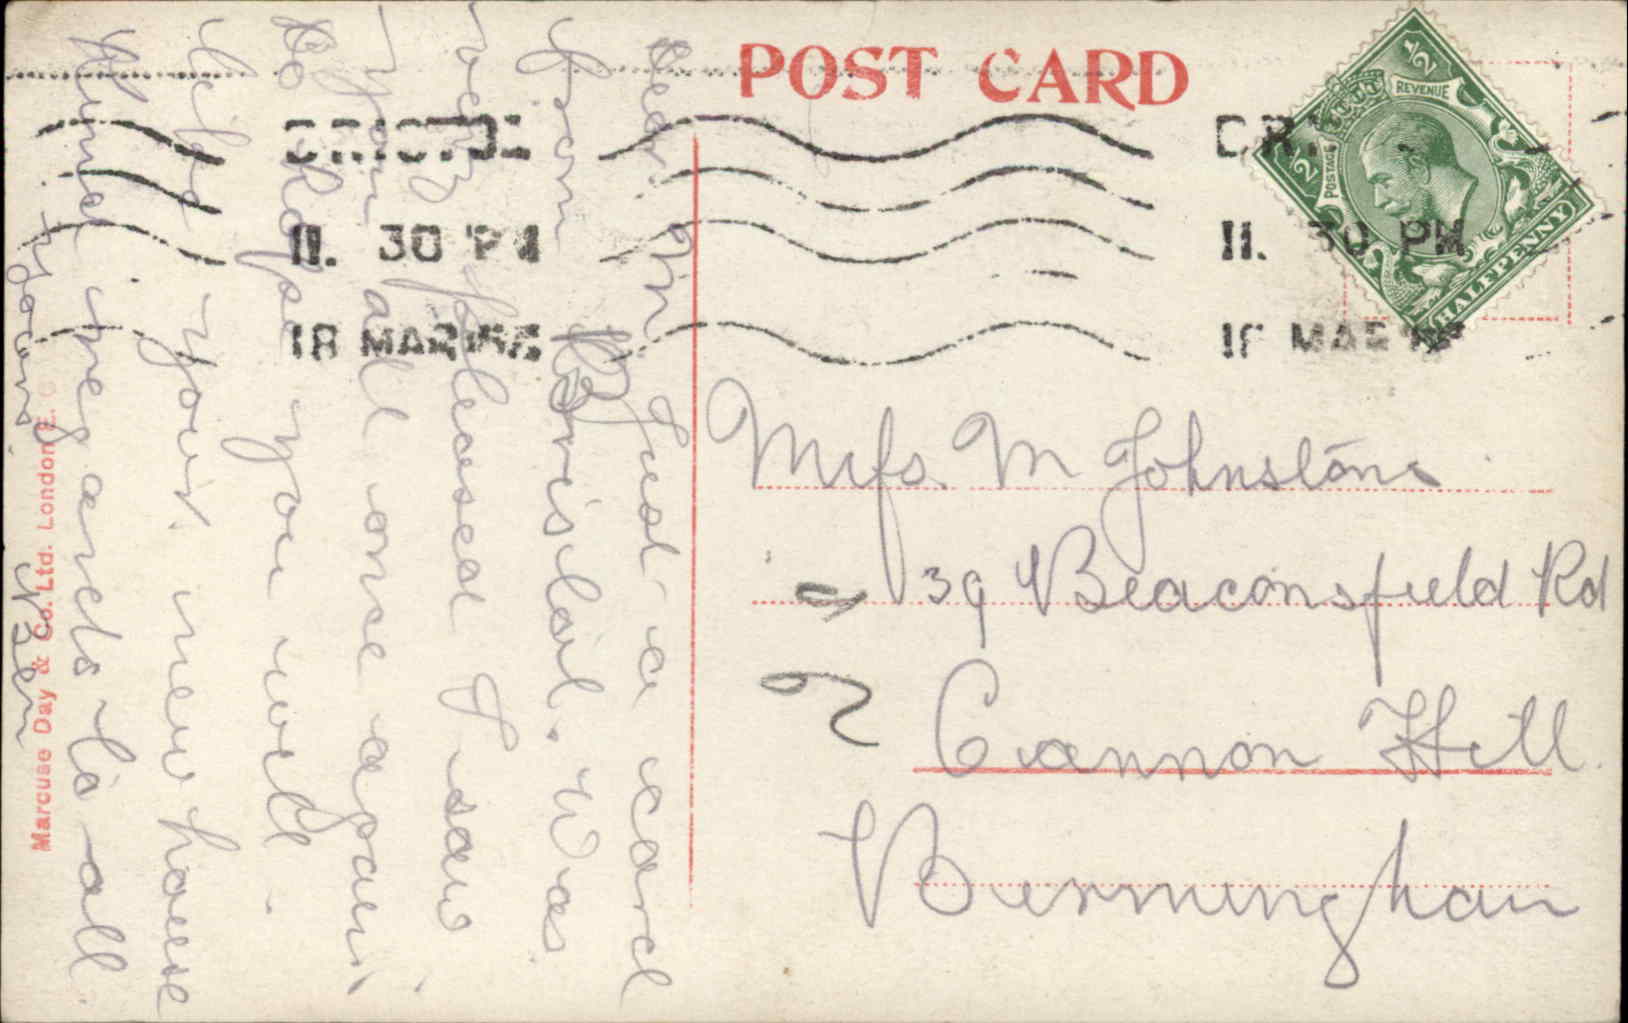 POST CARD
REVENUE
POSTAGE
1/2
1/2
HALFPENNY
BRISTOL
11. 30 PM
18 MAR
11. 30 PM
MAR
Dear M Just a card
from Bristol. Was
very pleased I saw
you all once again
So Hope you will
like your new house
Kind regards to all
yours
Ben
Miss M Johnstone
39 Beaconsfield Rd
Cannon Hill
Birmingham
Marcuse Day & Co. Ltd. London E. C